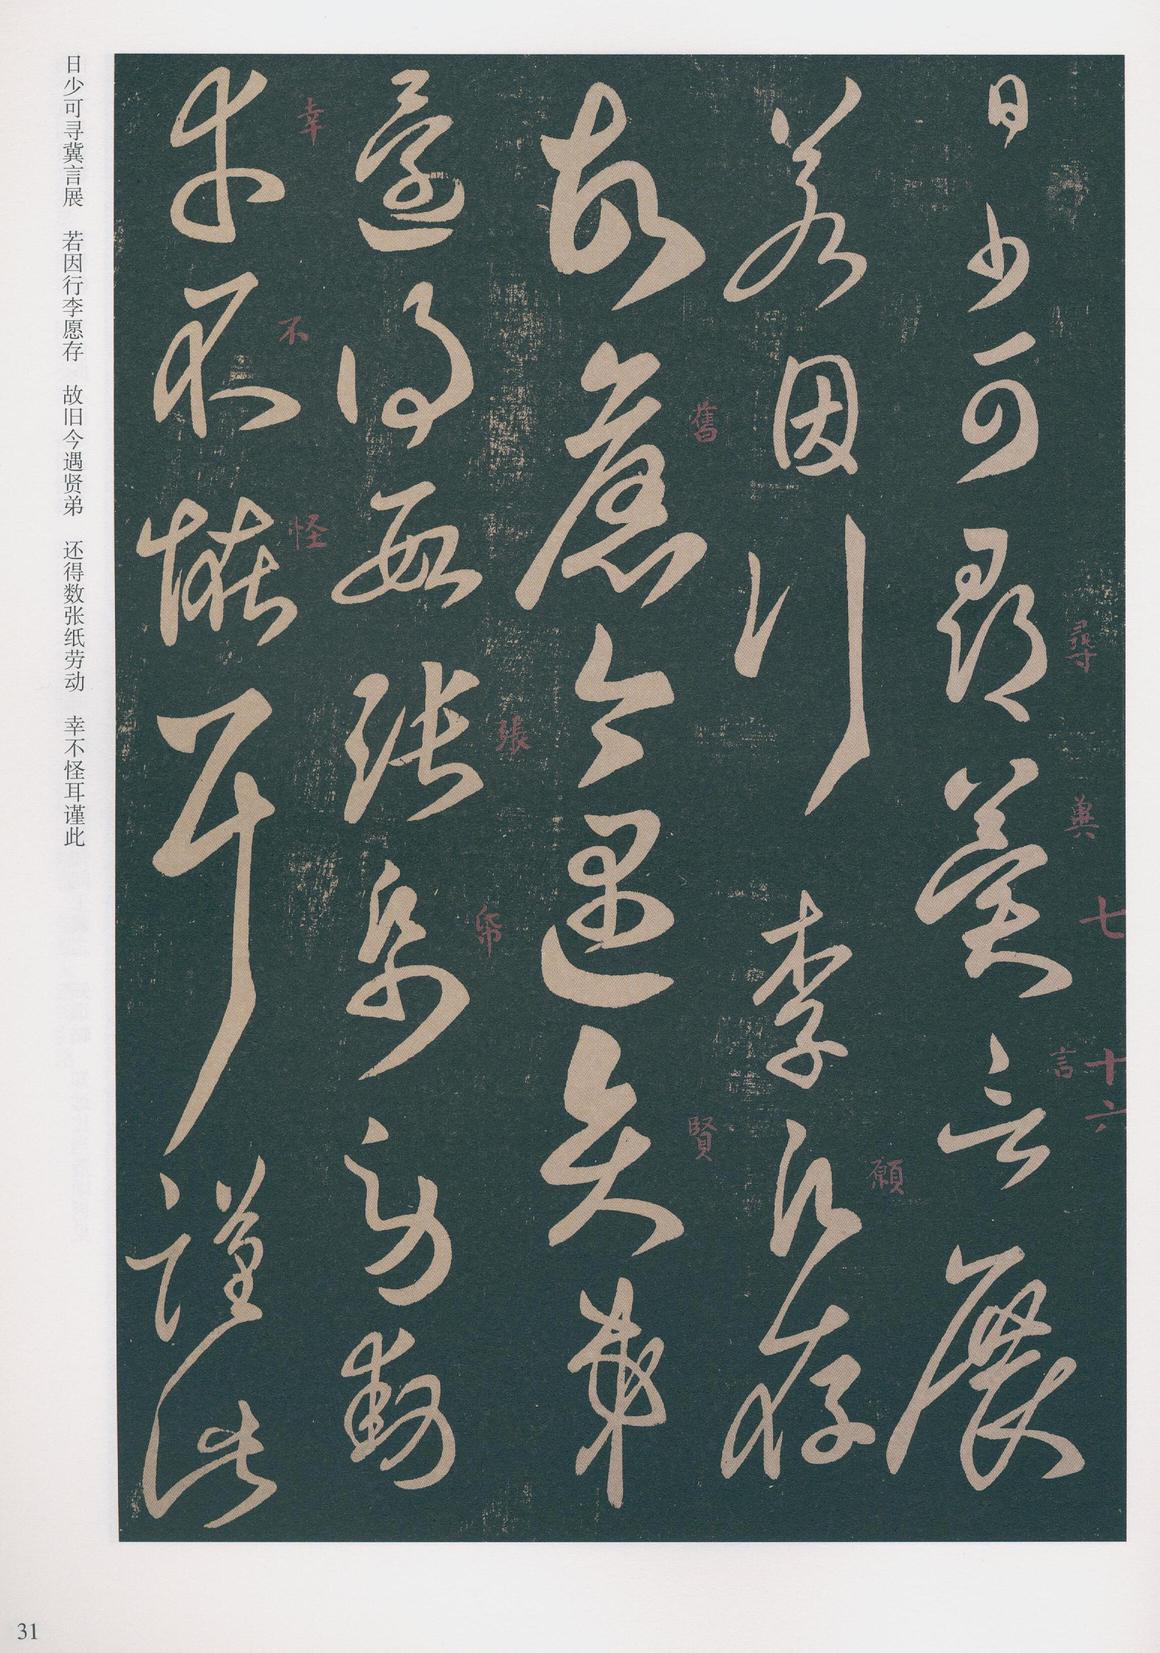 日少可尋冀言展
若因行李願存
故舊今遇賢弟
還得數張紙勞動
幸不怪耳謹此
尋
冀
七
言
十六
願
舊
賢
張
帋
幸
不
怪
日少可寻冀言展 若因行李愿存 故旧今遇贤弟 还得数张纸劳动 幸不怪耳谨此
31